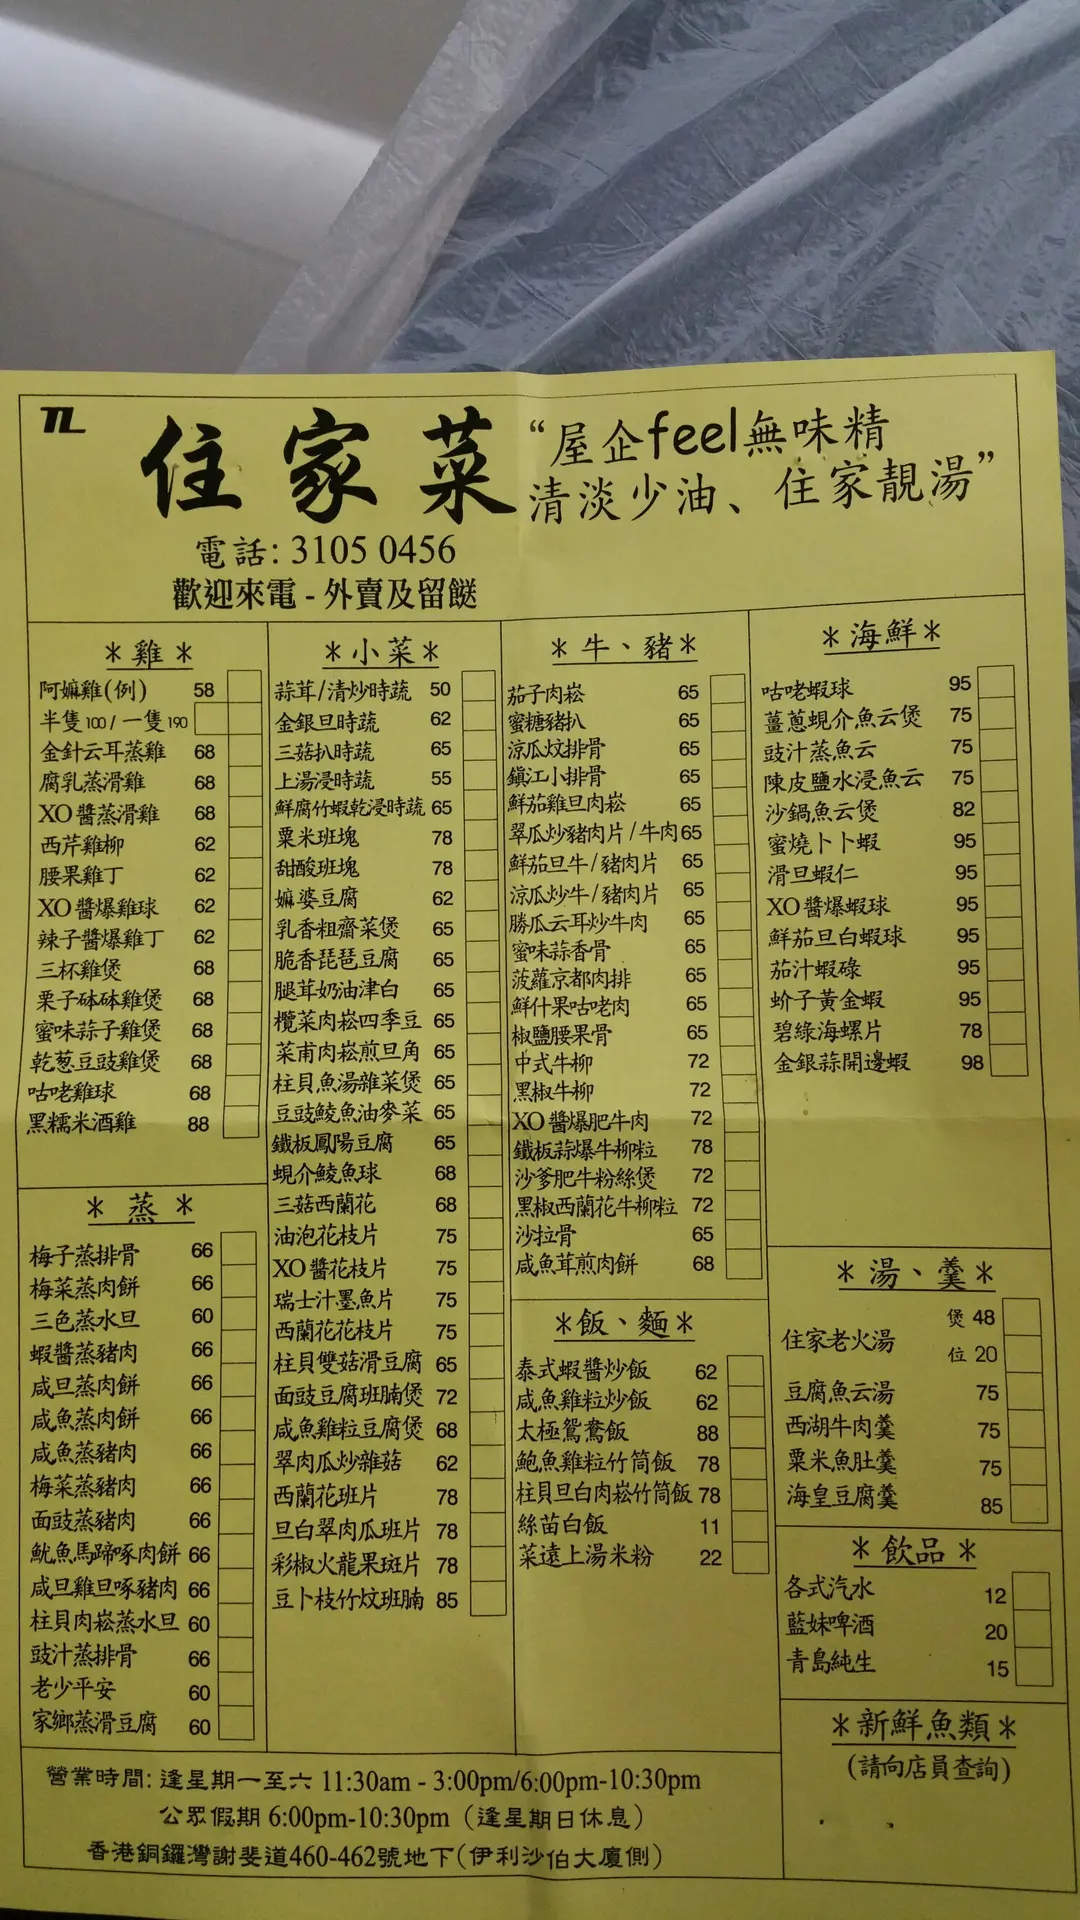 TL
住家菜
“屋企feel無味精
清淡少油、住家靚湯”
電話: 3105 0456
歡迎來電 - 外賣及留餸
＊雞＊
阿嫲雞(例) 58
半隻100 / 一隻190
金針云耳蒸雞 68
腐乳蒸滑雞 68
XO醬蒸滑雞 68
西芹雞柳 62
腰果雞丁 62
XO醬爆雞球 62
辣子醬爆雞丁 62
三杯雞煲 68
栗子砵砵雞煲 68
蜜味蒜子雞煲 68
乾葱豆豉雞煲 68
咕咾雞球 68
黑糯米酒雞 88
＊蒸＊
梅子蒸排骨 66
梅菜蒸肉餅 66
三色蒸水旦 60
蝦醬蒸豬肉 66
咸旦蒸肉餅 66
咸魚蒸肉餅 66
咸魚蒸豬肉 66
梅菜蒸豬肉 66
面豉蒸豬肉 66
魷魚馬蹄啄肉餅 66
咸旦雞旦啄豬肉 66
柱貝肉崧蒸水旦 60
豉汁蒸排骨 66
老少平安 60
家鄉蒸滑豆腐 60
＊小菜＊
蒜茸/清炒時蔬 50
金銀旦時蔬 62
三菇扒時蔬 65
上湯浸時蔬 55
鮮腐竹蝦乾浸時蔬 65
粟米班塊 78
甜酸班塊 78
嫲婆豆腐 62
乳香粗齋菜煲 65
脆香琵琶豆腐 65
腿茸奶油津白 65
欖菜肉崧四季豆 65
菜甫肉崧煎旦角 65
柱貝魚湯雜菜煲 65
豆豉鯪魚油麥菜 65
鐵板鳳陽豆腐 65
蜆介鯪魚球 68
三菇西蘭花 68
油泡花枝片 75
XO醬花枝片 75
瑞士汁墨魚片 75
西蘭花花枝片 75
柱貝雙菇滑豆腐 65
面豉豆腐班腩煲 72
咸魚雞粒豆腐煲 68
翠肉瓜炒雜菇 62
西蘭花班片 78
旦白翠肉瓜班片 78
彩椒火龍果斑片 78
豆卜枝竹炆班腩 85
＊牛、豬＊
茄子肉崧 65
蜜糖豬扒 65
涼瓜炆排骨 65
鎮江小排骨 65
鮮茄雞旦肉崧 65
翠瓜炒豬肉片/牛肉 65
鮮茄旦牛/豬肉片 65
涼瓜炒牛/豬肉片 65
勝瓜云耳炒牛肉 65
蜜味蒜香骨 65
菠蘿京都肉排 65
鮮什果咕咾肉 65
椒鹽腰果骨 65
中式牛柳 72
黑椒牛柳 72
XO醬爆肥牛肉 72
鐵板蒜爆牛柳粒 78
沙爹肥牛粉絲煲 72
黑椒西蘭花牛柳粒 72
沙拉骨 65
咸魚茸煎肉餅 68
＊飯、麵＊
泰式蝦醬炒飯 62
咸魚雞粒炒飯 62
太極鴛鴦飯 88
鮑魚雞粒竹筒飯 78
柱貝旦白肉崧竹筒飯 78
絲苗白飯 11
菜遠上湯米粉 22
＊海鮮＊
咕咾蝦球 95
薑蔥蜆介魚云煲 75
豉汁蒸魚云 75
陳皮鹽水浸魚云 75
沙鍋魚云煲 82
蜜燒卜卜蝦 95
滑旦蝦仁 95
XO醬爆蝦球 95
鮮茄旦白蝦球 95
茄汁蝦碌 95
蚧子黃金蝦 95
碧綠海螺片 78
金銀蒜開邊蝦 98
＊湯、羹＊
住家老火湯 煲 48
位 20
豆腐魚云湯 75
西湖牛肉羹 75
粟米魚肚羹 75
海皇豆腐羹 85
＊飲品＊
各式汽水 12
藍妹啤酒 20
青島純生 15
＊新鮮魚類＊
(請向店員查詢)
營業時間: 逢星期一至六 11:30am - 3:00pm/6:00pm-10:30pm
公眾假期 6:00pm-10:30pm（逢星期日休息）
香港銅鑼灣謝斐道460-462號地下(伊利沙伯大廈側)